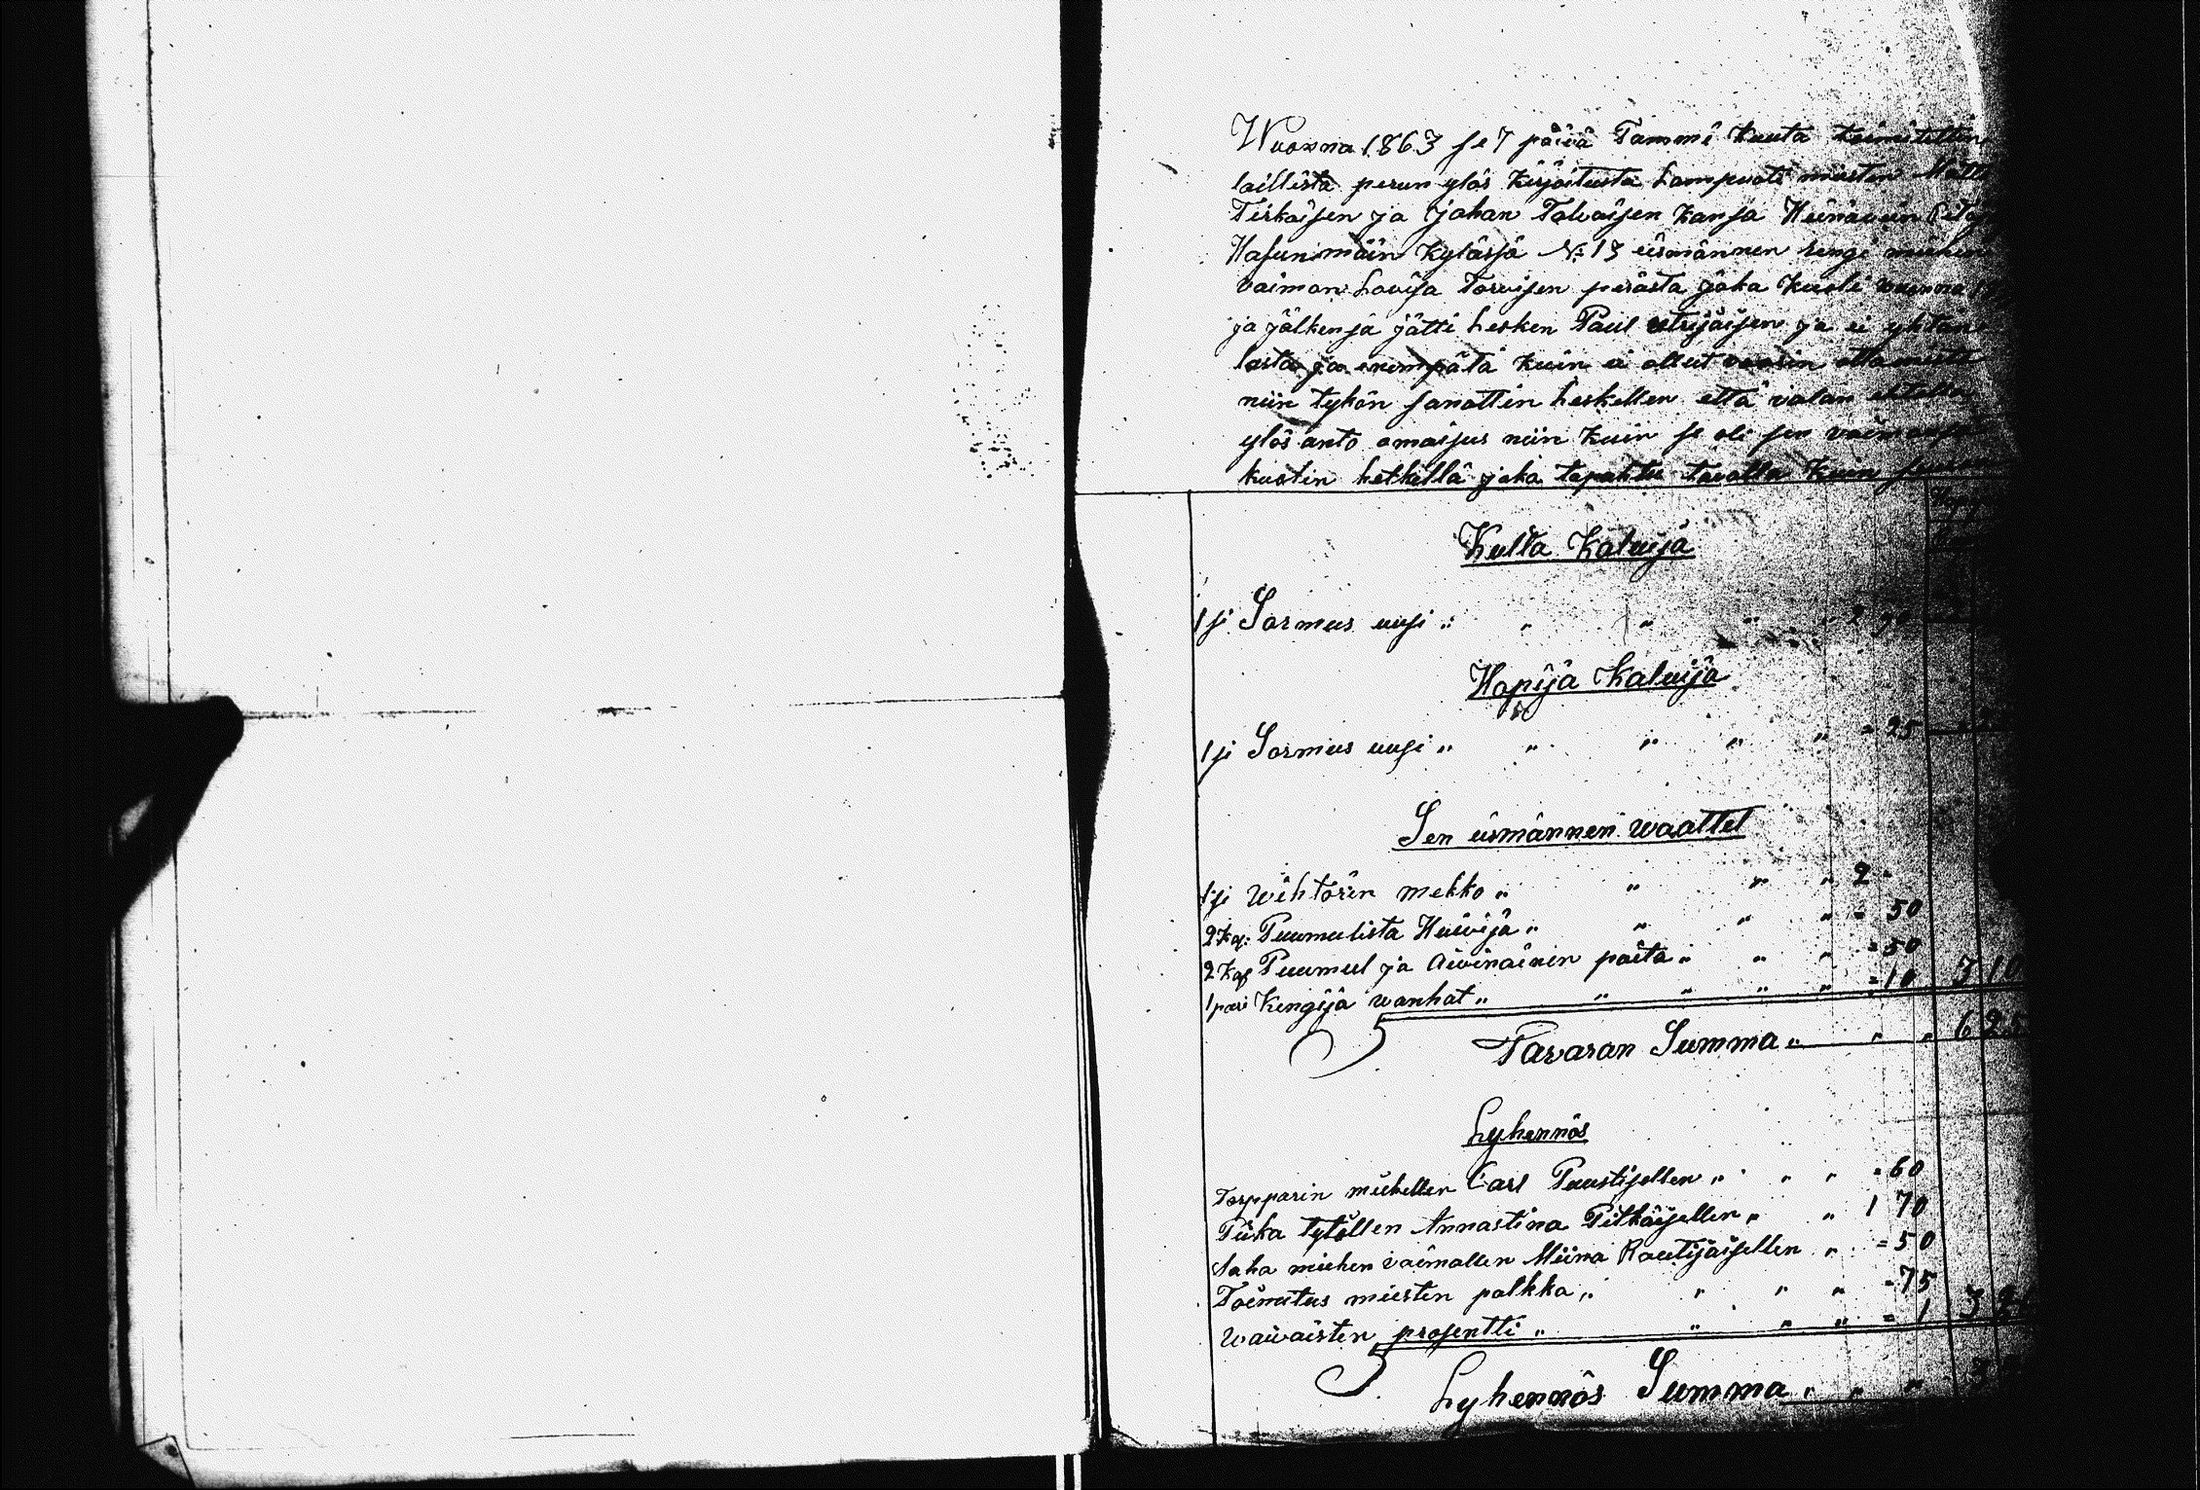 Wuonna 1863 se 7 päivä Tammi kuuta toimitettin
laillista perun ylös kirjoitusta Lampuoti miesten Matti
Tirkoisen ja Johan Talvaisen kansa Heinäwein
Hasunmäin kylässä N:o 13 eismännen rengi miehen
vaimon Lovisa Torvisen perästä joka kuoli
ja jälkensä jätti lesken Paul ja ei yhtän
lasta ja enempätä kuin ei ollut
niin tykön sanottin leskellen että valan
ylös anto omaisus niin kuin se oli sen
kuolin hetkellä joka tapahtu tavalla kuin
Kulta Kaluija
1 si Sormus uusi „ „ „ „ „ 2 90
Hopija Kaluija
1 si Sormus uusi „ „ „ „ „ = 25
Sen eismännen waattet
1 si wihtorin mekko „ „ „ „ 2 "
2 Kap: Puumulista Huivija „ „ „ „ = 50
2 Kap Puumul ja Aivinainen paita „ „ „ = 50
1 pari Kengijä wanhat „ „ „ „ „ = 10 3 10
Tavaran Summa „ „ „ 6 25
Lyhennös
Torpparin miehellen Carl Paustisellen „ „ „ = 60
Piika tytöllen Annastina Pitkäisellen „ „ 1 70
Saha miehen vaimollen Miina Rautijaisellen „ = 50
Toimitus miesten palkka „ „ „ „ = 75
waivaisten prosentti „ „ „ „ = 1 3
Lyhennös Summa „ „ „